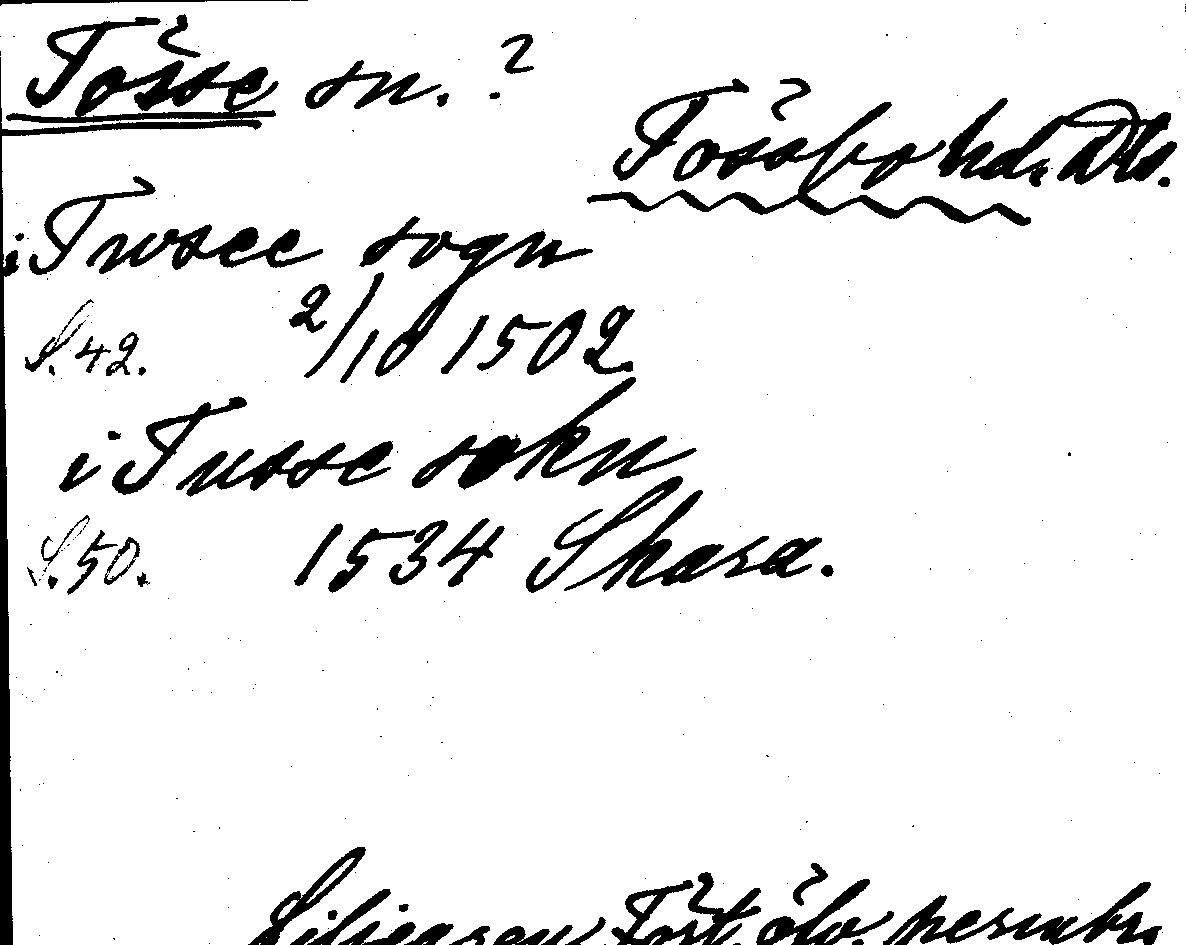 Tösse sn. ?
Tössbo hd. Dls.
i Twsee sogn
S. 42. 2/10 1502.
i Tusse sokn
S. 50. 1534 Skara.
Liljegren Fört. öfv. permbr.